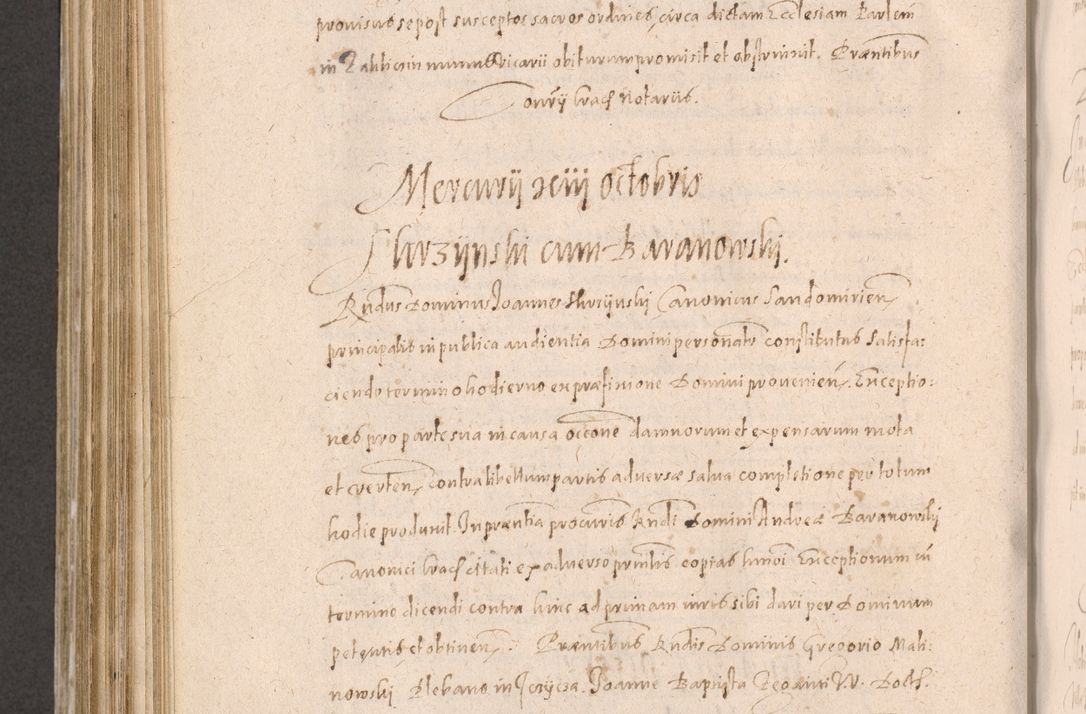 provisus se post susceptos sacros ordines, circa dictam Ecclesiam Parlem
in Vicarii obiturum promisit et obstrinxit. Præntibus
Crac Notariis.
Mercurij xiiij octobris
Skrzÿnski cum Baranowski.
Rndus Dominus Joannes Skrzÿnski Canonicus Sandomirien
principalis in publica audientia Domini personalr constitutus Satisfa:
ciendo termino hodierno ex præfixione Domini provenien. Exceptio:
nes pro parte sua in causa occone damnorum et expensarum mota
et verten, contra libellum partis adversæ salva completione per totum
hodie produxit. In præntia procuris Rndi Domini Andreæ Baranowskj
Canonici Crac citati ex adverso prinlis copias hmoi Exceptionum in
termino dicendi contra hinc ad primam iuris sibi dari per Dominum
petentis et obtinen. Præntibus Rndis Dominis Gregorio Mali:
nowski Plebano in Joanne Baptista W. Doct.